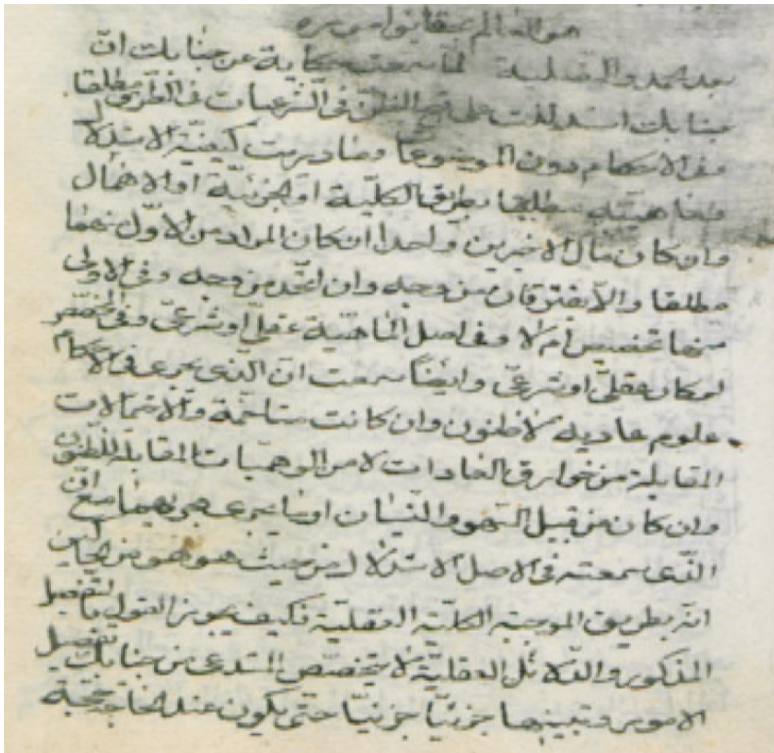 هو الله العالم بحقايق امور
بعد الحمد والتصلية لما سمعت حكاية عن جنابك انّ
جنابك استدللت على حجج الظنّ فى الشرعيات فى الطرق مطلقا
وفى الاحكام دون الموضوعا وما دريت كيفيّة الاستدلال
وماهيته مطلقا بطريق الكلية او الجزئيّة او الاهمال
وان كان مآل الاخيرين واحدا ان كان المراد من الاوّل نحوا
مطلقا والا يفترقان من وجه وان اتّحد من وجه وفى الاولى
منها تخصيص ام لا وفى اصل الماهيّة عقلىّ او شرعىّ وفى المخصّص
لو كان عقلىّ او شرعىّ وايضاً سمعت انّ الّذى يجرى فى الاحكام
علوم عاديه لا ظنون وان كانت متاخمة والاحتمالات
المقابلة من خوارق العادات لا من الوهميات المقابلة للظنون
وان كان من قبيل السّهو والنسيان او ما يجرى مجريهما مع انّ
الّذى سمعته فى الاصل الاستدلال من حيث هو هو من المجالين
انّه بطريق الموجبة الكليّة العقليّة فكيف يجوز القول بالتفصيل
المذكور والدّلائل العقليّة لا يتخصّص المستدعى من جنابك تفصيل
الامور وتبيينها جزئيّا جزئيّا حتى يكون عند الحاجة حجّة